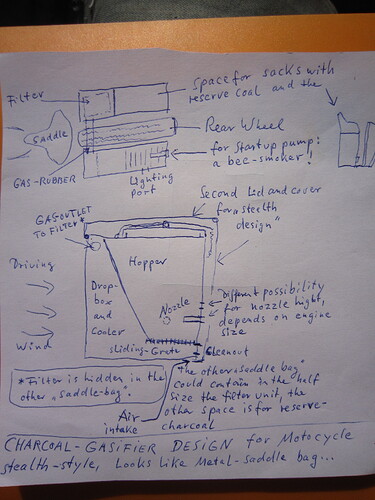 Space for sacks with
reserve coal and the
Filter
Saddle
Rear Wheel
for startup pump:
a bee-smoker!
GAS-RUBBER
Lighting
port
GASOUTLET
TO FILTER
Second Lid and cover
for „stealth
design"
Driving
Hopper
Drop-
box
and
Cooler
Nozzle
Different possibility
for nozzle hight,
depends on engine
size
Wind
sliding-Grate
Cleanout
*Filter is hidden in the
other „saddle-bag".
The other „saddle bag"
could contain in the half
size the filter unit, the
other space is for reserve-
charcoal
Air
intake
CHARCOAL-GASIFIER DESIGN for Motocycle
stealth-style, Looks like Metal-saddle bag...